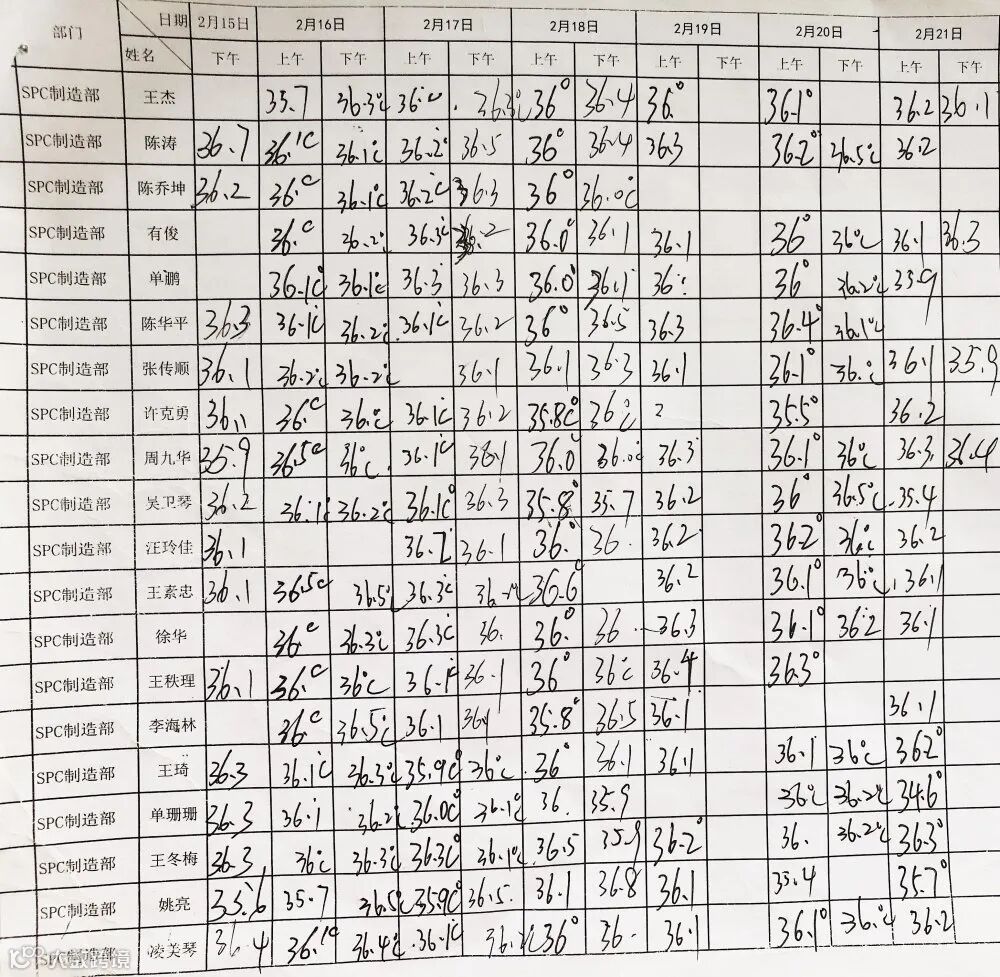 部门 日期 姓名 2月15日 2月16日 2月17日 2月18日 2月19日 2月20日 2月21日
下午 上午 下午 上午 下午 上午 下午 上午 下午 上午 下午 上午 下午
SPC制造部 王杰 35.7 36.3℃ 36.3℃ 36° 36.4 36° 36.1° 36.2 36.1
SPC制造部 陈涛 36.7 36.1C 36.1℃ 36.2° 36.5 36° 36.4 36.3 36.2° 36.5℃ 36.2
SPC制造部 陈乔坤 36.2 36.C 36.1℃ 36.2℃ 36.3 36° 36.0℃
SPC制造部 有俊 36.C 36.2° 36.3℃ 36.0° 36.1 36.1 36° 36℃ 36.1 36.3
SPC制造部 单鹏 36.1℃ 36.1℃ 36.3 36.3 36.0° 36.1 36° 36° 36.2℃ 35.9
SPC制造部 陈华平 36.3 36.1℃ 36.2℃ 36.1℃ 36.2 36° 36.5 36.3 36.4° 36.1℃
SPC制造部 张传顺 36.1 36.2℃ 36.2℃ 36.1 36.1 36.3 36.1 36.1° 36.℃ 36.1 35.9
SPC制造部 许克勇 36.1 36.C 36.℃ 36.1℃ 36.2 35.8C° 36℃ 35.5° 36.2
SPC制造部 周九华 35.9 36.5C 36℃ 36.1℃ 36.1 36.0 36.0℃ 36.3 36.1° 36℃ 36.3 36.4
SPC制造部 吴卫琴 36.2 36.1℃ 36.2℃ 36.1C° 36.3 35.8° 35.7 36.2 36° 36.5℃ 35.4
SPC制造部 汪玲佳 36.1 36.2° 36.1 36.° 36. 36.2 36.2° 36.℃ 36.2
SPC制造部 王素忠 36.1 36.5C 36.5° 36.3℃ 36.6° 36.2 36.1° 36℃ 36.1
SPC制造部 徐华 36.C 36.3℃ 36.3℃ 36. 36.° 36 36.3 36.1° 36.2 36.1
SPC制造部 王秩理 36.1 36.C 36℃ 36.1℃ 36.1 36° 36℃ 36.4 36.3°
SPC制造部 李海林 36.C 36.5℃ 36.1 36.1 35.8° 36.5 36.1 36.1
SPC制造部 王琦 36.3 36.1℃ 36.3℃ 35.9C° 36℃ 36° 36.1 36.1 36.1 36℃ 36.2°
SPC制造部 单珊珊 36.3 36.1 36.2℃ 36.0C° 36.1℃ 36. 35.9 36℃ 36.2℃ 34.6°
SPC制造部 王冬梅 36.3 36℃ 36.3℃ 36.3C° 36.1℃ 36.5 35.9 36.2° 36. 36.2℃ 36.3°
SPC制造部 姚亮 35.6 35.7 36.5℃ 35.9C° 36.5 36.1 36.8 36.1 35.4 35.7°
SPC制造部 凌美琴 36.4 36.1C 36.4℃ 36.1℃ 36° 36. 36.1 36.1° 36.℃ 36.2
大数跨境